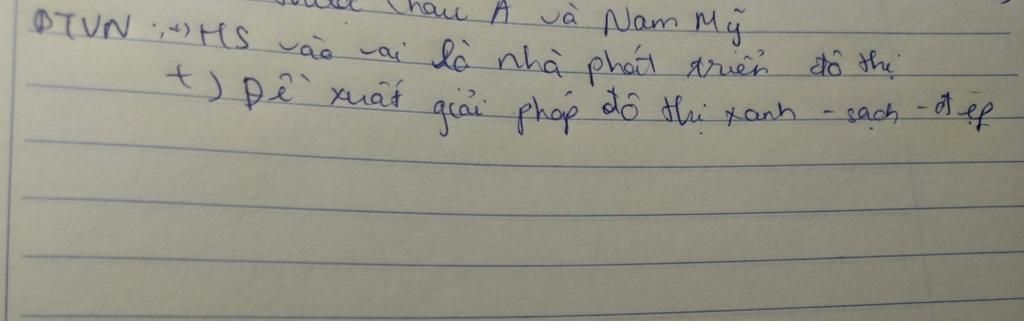 Châu Á và Nam Mỹ
BTVN : +) HS vào vai là nhà phát triển đô thị
+) Đề xuất giải pháp đô thị xanh - sạch - đẹp